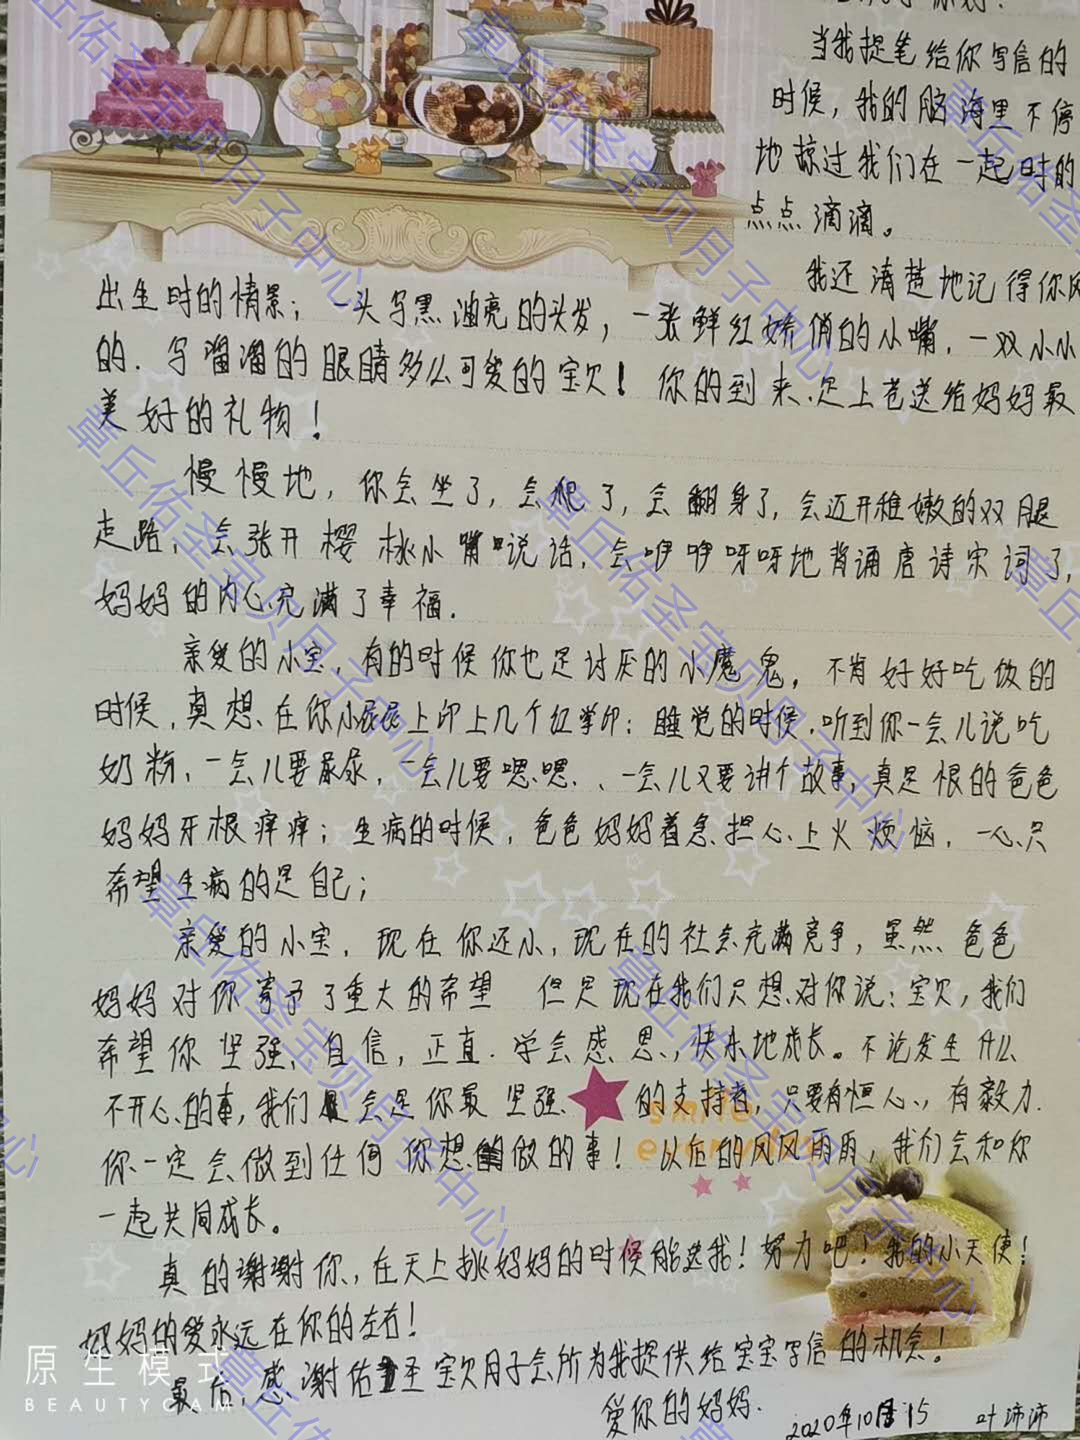 你好!
当我提笔给你写信的
时候，我的脑海里不停
地掠过我们在一起时的
点点滴滴。
我还清楚地记得你刚
出生时的情景；一头乌黑油亮的头发，一张鲜红娇俏的小嘴，一双小小
的．乌溜溜的眼睛多么可爱的宝贝！你的到来、是上苍送给妈妈最
美好的礼物！
慢慢地，你会坐了，会爬了，会翻身了，会迈开稚嫩的双腿
走路，会张开樱桃小嘴说话，会咿咿呀呀地背诵唐诗宋词了，
妈妈的内心充满了幸福．
亲爱的小宝，有的时候你也是讨厌的小魔鬼，不肯好好吃饭的
时候，真想在你小屁屁上印上几个红掌印；睡觉的时候．听到你一会儿说吃
奶粉，一会儿要尿尿，一会儿要嗯嗯、一会儿又要讲个故事，真是恨的爸爸
妈妈牙根痒痒；生病的时候，爸爸妈妈着急担心上火烦恼，一心只
希望生病的是自己；
亲爱的小宝，现在你还小，现在的社会充满竞争，虽然爸爸
妈妈对你寄予了重大的希望 但是现在我们只想对你说：宝贝，我们
希望你坚强、自信，正直．学会感恩，快乐地成长。不论发生什么
不开心的事，我们会是你最坚强的支持者，只要有恒心、有毅力．
你一定会做到任何你想做的事！以后的风风雨雨，我们会和你
一起共同成长。
真的谢谢你，在天上挑妈妈的时候能选我！努力吧！我的小天使！
妈妈的爱永远在你的左右！
最后，感谢佑圣宝贝月子会所为我提供给宝宝写信的机会！
爱你的妈妈．
2020年10月15 叶沛沛
smile
everyday
章丘佑圣宝贝月子中心
章丘佑圣宝贝月子中心
章丘佑圣宝贝月子中心
章丘佑圣宝贝月子中心
章丘佑圣宝贝月子中心
章丘佑圣宝贝月子中心
原生模式
BEAUTYCAM